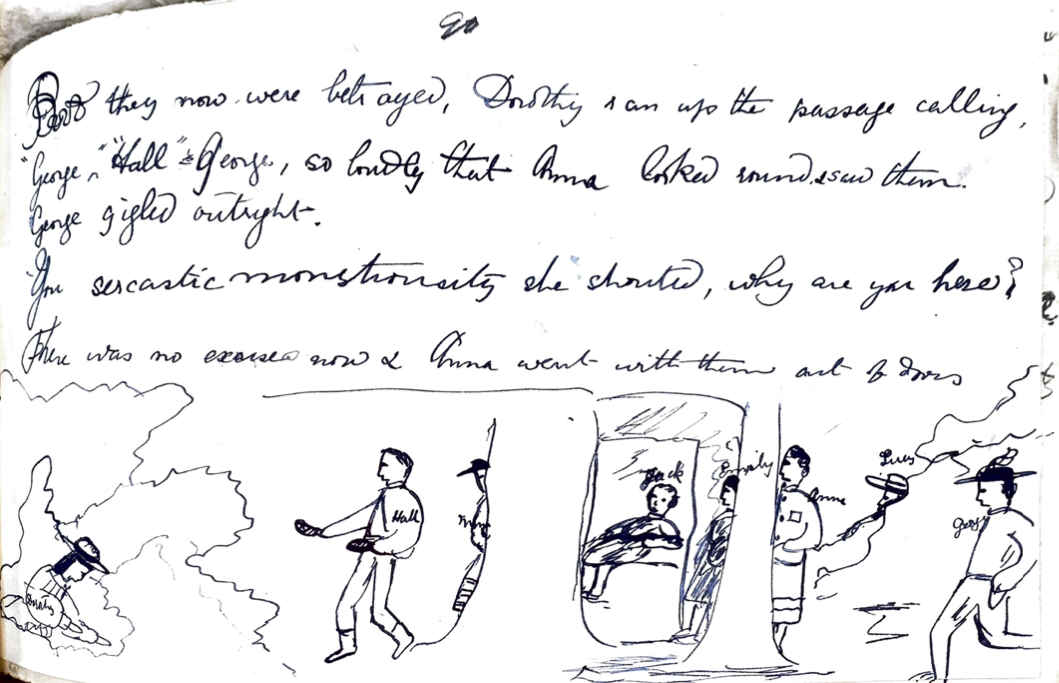 90
But they now were betrayed, Dorothy ran up the passage calling,
"George," "Hall" & George, so loudly that Anna looked round & saw them.
George gigled outright.
"You sercastic monstrousity she shouted, why are you here?
There was no excuse now & Anna went with them out of doors
Dorothy
Hall
Jack
Emily
Anna
Lucy